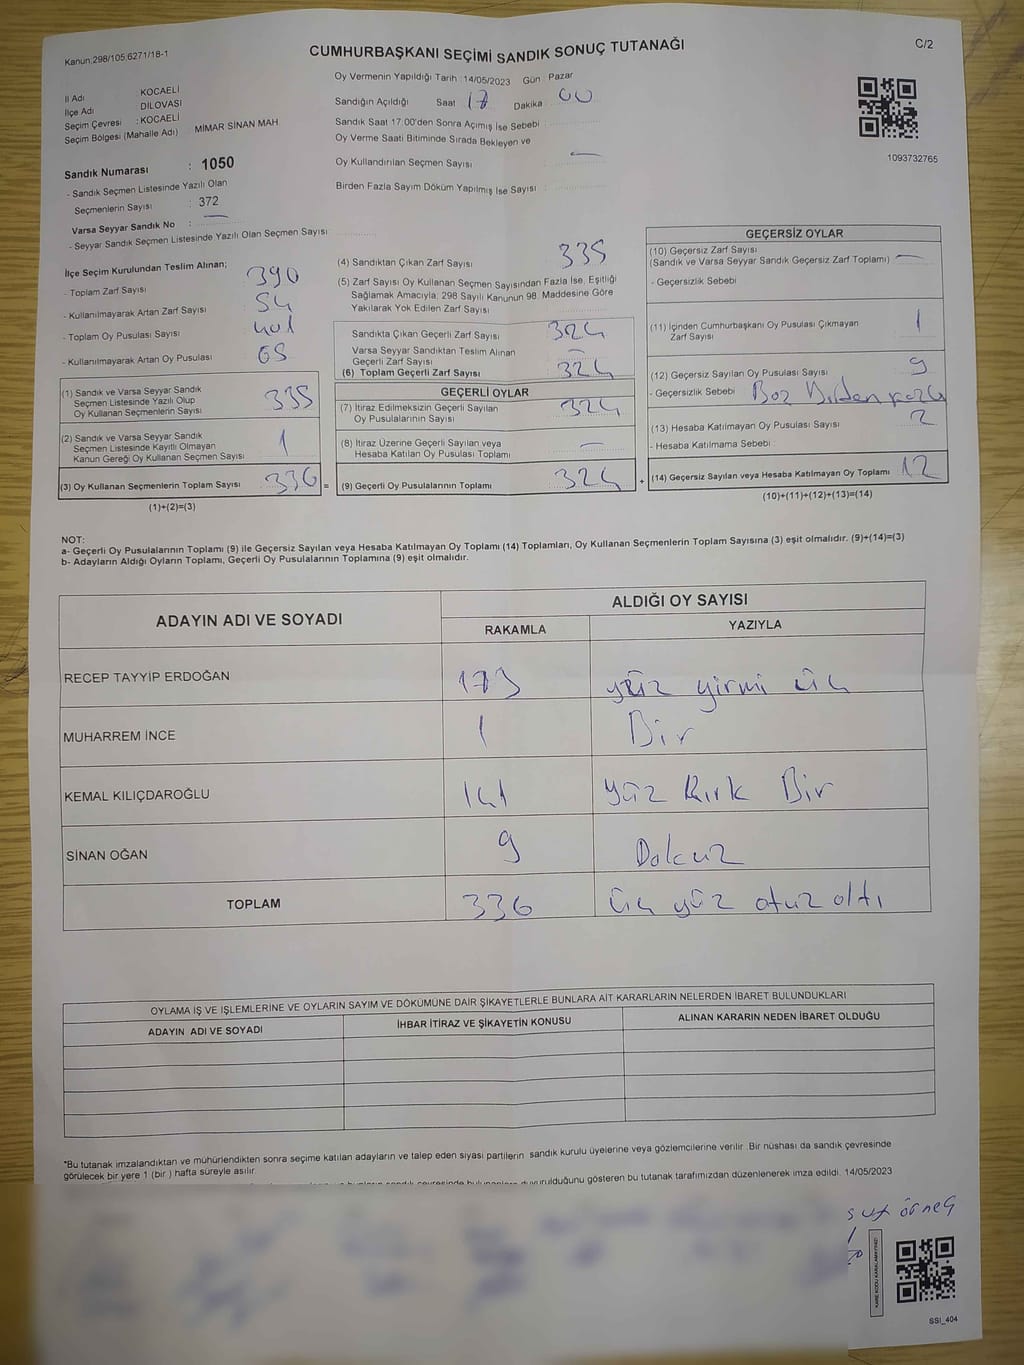 Kanun:298/105;6271/18-1
CUMHURBAŞKANI SEÇİMİ SANDIK SONUÇ TUTANAĞI
C/2
İl Adı KOCAELİ
İlçe Adı DİLOVASI
Seçim Çevresi : KOCAELİ
Seçim Bölgesi (Mahalle Adı) MİMAR SİNAN MAH
Oy Vermenin Yapıldığı Tarih :14/05/2023 Gün Pazar
Sandığın Açıldığı Saat 17 Dakika 00
Sandık Saat 17:00'den Sonra Açımış İse Sebebi :
Oy Verme Saati Bitiminde Sırada Bekleyen ve
Oy Kullandırılan Seçmen Sayısı : —
Birden Fazla Sayım Döküm Yapılmış İse Sayısı :
1093732765
Sandık Numarası : 1050
- Sandık Seçmen Listesinde Yazılı Olan
Seçmenlerin Sayısı : 372
Varsa Seyyar Sandık No : —
- Seyyar Sandık Seçmen Listesinde Yazılı Olan Seçmen Sayısı
İlçe Seçim Kurulundan Teslim Alınan;
- Toplam Zarf Sayısı 390
- Kullanılmayarak Artan Zarf Sayısı 54
- Toplam Oy Pusulası Sayısı 401
- Kullanılmayarak Artan Oy Pusulası 65
(1) Sandık ve Varsa Seyyar Sandık
Seçmen Listesinde Yazılı Olup
Oy Kullanan Seçmenlerin Sayısı 335
(2) Sandık ve Varsa Seyyar Sandık
Seçmen Listesinde Kayıtlı Olmayan
Kanun Gereği Oy Kullanan Seçmen Sayısı 1
(3) Oy Kullanan Seçmenlerin Toplam Sayısı 336 =
(1)+(2)=(3)
(4) Sandıktan Çıkan Zarf Sayısı 335
(5) Zarf Sayısı Oy Kullanan Seçmen Sayısından Fazla İse, Eşitliği
Sağlamak Amacıyla, 298 Sayılı Kanunun 98. Maddesine Göre
Yakılarak Yok Edilen Zarf Sayısı
Sandıkta Çıkan Geçerli Zarf Sayısı 324
Varsa Seyyar Sandıktan Teslim Alınan
Geçerli Zarf Sayısı —
(6) Toplam Geçerli Zarf Sayısı 324
GEÇERLİ OYLAR
(7) İtiraz Edilmeksizin Geçerli Sayılan
Oy Pusulalarının Sayısı 324
(8) İtiraz Üzerine Geçerli Sayılan veya
Hesaba Katılan Oy Pusulası Toplamı —
(9) Geçerli Oy Pusulalarının Toplamı 324 +
GEÇERSİZ OYLAR
(10) Geçersiz Zarf Sayısı
(Sandık ve Varsa Seyyar Sandık Geçersiz Zarf Toplamı) —
- Geçersizlik Sebebi
(11) İçinden Cumhurbaşkanı Oy Pusulası Çıkmayan
Zarf Sayısı 1
(12) Geçersiz Sayılan Oy Pusulası Sayısı 9
- Geçersizlik Sebebi Boz Birden fazla
(13) Hesaba Katılmayan Oy Pusulası Sayısı 2
- Hesaba Katılmama Sebebi
(14) Geçersiz Sayılan veya Hesaba Katılmayan Oy Toplamı 12
(10)+(11)+(12)+(13)=(14)
NOT:
a- Geçerli Oy Pusulalarının Toplamı (9) ile Geçersiz Sayılan veya Hesaba Katılmayan Oy Toplamı (14) Toplamları, Oy Kullanan Seçmenlerin Toplam Sayısına (3) eşit olmalıdır. (9)+(14)=(3)
b- Adayların Aldığı Oyların Toplamı, Geçerli Oy Pusulalarının Toplamına (9) eşit olmalıdır.
ADAYIN ADI VE SOYADI ALDIĞI OY SAYISI
RAKAMLA YAZIYLA
RECEP TAYYİP ERDOĞAN 173 yüz yirmi üç
MUHARREM İNCE 1 Bir
KEMAL KILIÇDAROĞLU 141 yüz kırk Bir
SİNAN OĞAN 9 Dokuz
TOPLAM 336 üç yüz otuz altı
OYLAMA İŞ VE İŞLEMLERİNE VE OYLARIN SAYIM VE DÖKÜMÜNE DAİR ŞİKAYETLERLE BUNLARA AİT KARARLARIN NELERDEN İBARET BULUNDUKLARI
ADAYIN ADI VE SOYADI İHBAR İTİRAZ VE ŞİKAYETİN KONUSU ALINAN KARARIN NEDEN İBARET OLDUĞU
*Bu tutanak imzalandıktan ve mühürlendikten sonra seçime katılan adayların ve talep eden siyasi partilerin sandık kurulu üyelerine veya gözlemcilerine verilir. Bir nüshası da sandık çevresinde
görülecek bir yere 1 (bir ) hafta süreyle asılır.
duyurulduğunu gösteren bu tutanak tarafımızdan düzenlenerek imza edildi. 14/05/2023
örneğ
KARE KODU KARALAMAYINIZ!
SSİ_404